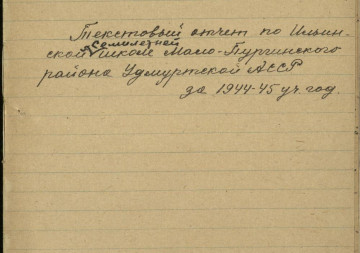 Текстовый отчет по Ильин-
семилетней
ской школе Мало-Пургинского
района Удмуртской АССР
за 1944-45 уч. год.